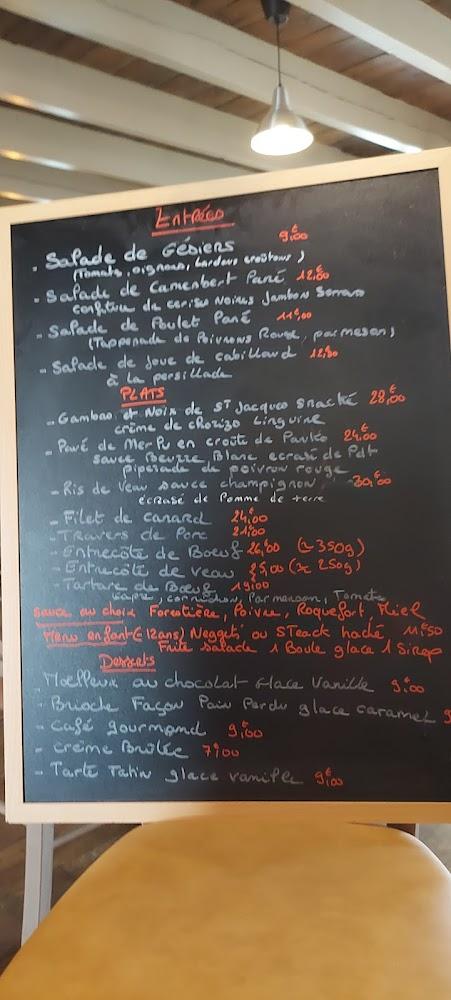 Entrées
- Salade de Gésiers 9€00
(Tomate, oignons, Lardons croûtons)
- Salade de Camenbert Pané 12€00
confiture de cerise Noires Jambon Serrano
- Salade de Poulet Pané 11€00
(Tappenade de Poivrons Rouge, parmesan)
- Salade de Joue de cabillaud 12€00
à la persillade
PLATS
- Gambas et Noix de ST Jacques Snacké 28€00
crème de chorizo Linguine
- Pavé de Merlu en croûte de Panko 24€00
sauce Beurre Blanc ecrasé de Pdt
piperade de poivron rouge
- Ris de Veau sauce champignon, 30€00
écrasé de Pomme de terre
- Filet de canard 24€00
- Travers de Porc 21€00
- Entrecôte de Boeuf 26€00 (≃ 350g)
- Entrecôte de veau 25,00 (≃ 250g)
- Tartare de Boeuf 19€00
capre, cornichon, Parmesan, Tomate
Sauce au choix Forestière, Poivre, Roquefort, Miel
Menu enfant (-12ans) Neggets ou STeack haché, 11€50
Frite Salade 1 Boule glace 1 Sirop
Desserts
- Moelleux au chocolat Glace Vanille 9€00
- Brioche Façon Pain Perdu glace caramel 9
- Café gourmand 9€00
- Crème Brûlée 7€00
- Tarte Tatin glace vanille 9€00